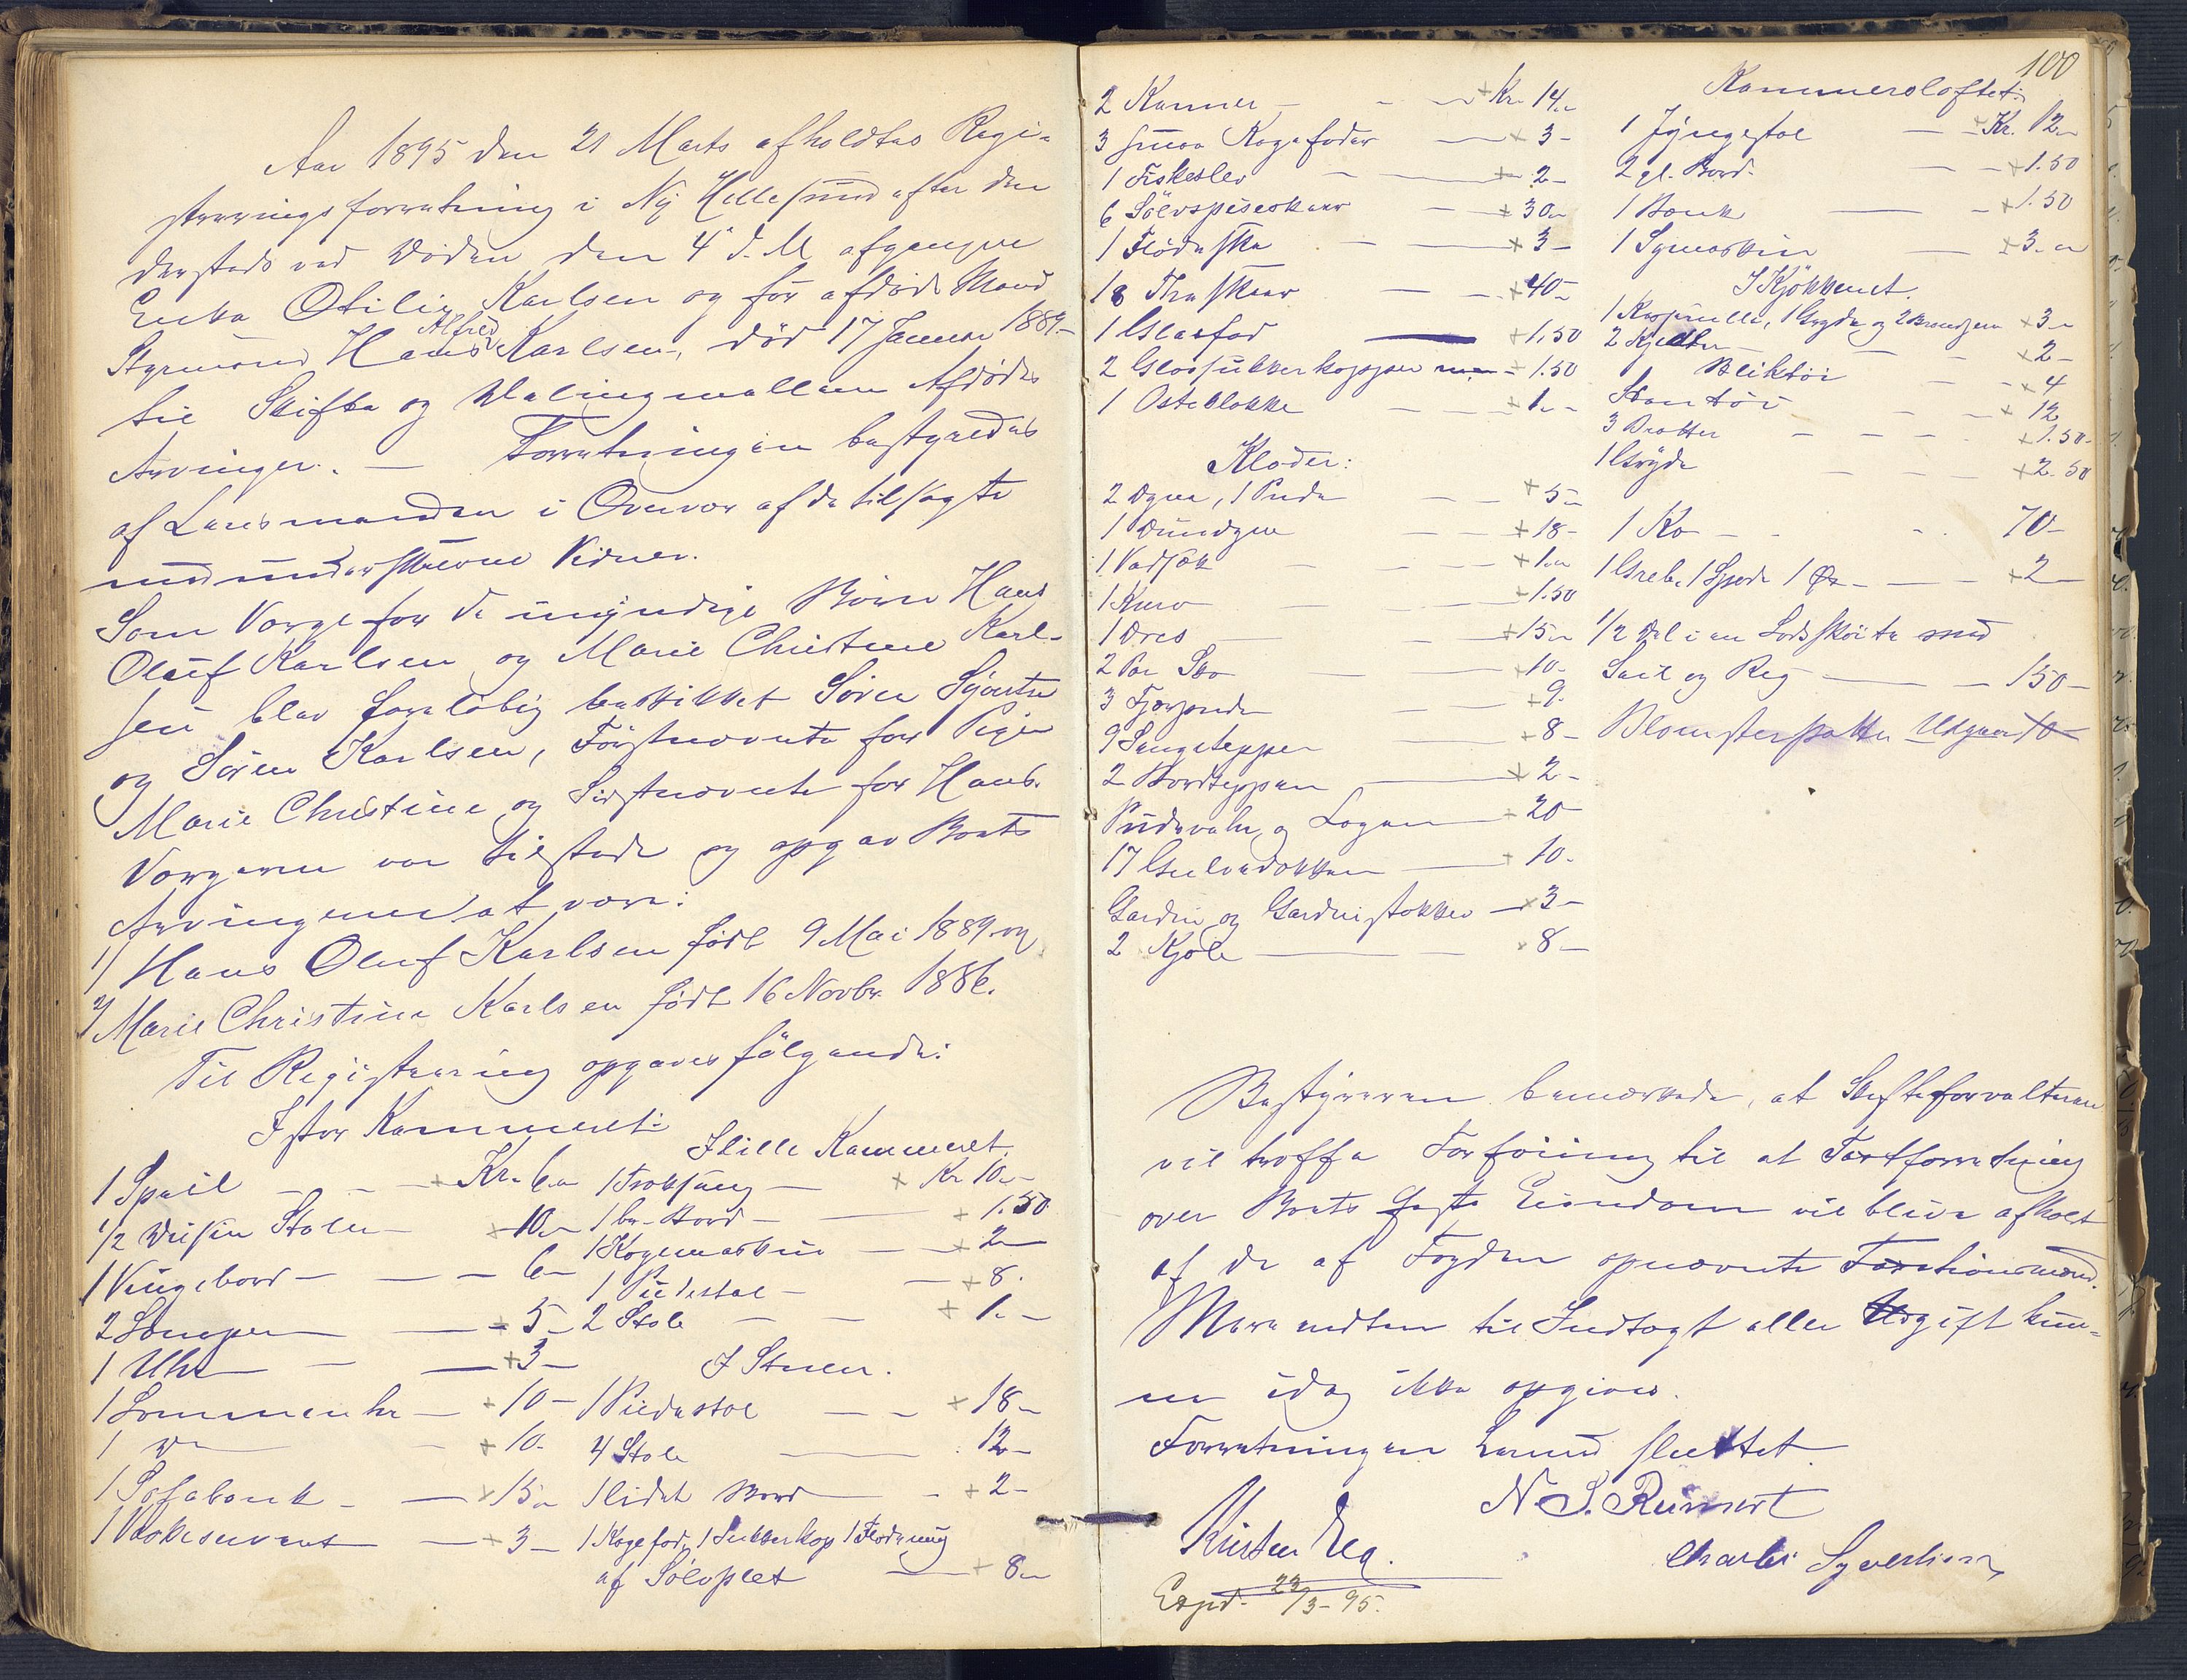 Aar 1895 den 21 Marts afholdtes Regi-
streringsforretning i Ny Hellesund efter den
dersteds ved Døden den 4' d. M. afgangne
Enke Otilie Karlsen og før afdøde Mand
Alfred
Styrmand Hans Karlsen, død 17 Januar 1889-
til Skifte og Deling mellem Afdødes
Arvinger. — Forretningen bestyredes
af Lensmanden i Overvær af de tilsagte
med underskrevne Vidner.
Som Verge for de umyndige Børn Hans
Oluf Karlsen og Marie Christine Karl-
sen blev foreløbig beskikket Søren
og Søren Karlsen, Förstnævnte for Pigen
Marie Christine og Sidstnævnte for Hans.
Vergerne var tilstede og opgav Boets
Arvinger at være:
1) Hans Oluf Karlsen født 9 Mai 1889 og
2) Marie Christine Karlsen født 16 Novbr 1886.
Til Registrering opgaves følgende:
I stor Kammeret:
1 Speil - - + Kr. 6.-
1/2 Dusin Stoler - + 10.-
1 Vingebord - - - 6-
2 Lamper - + 5-
1 Uhr - + 3-
1 Lommeuhr - + 10-
1 do - + 10-
1 Sofabenk - + 15.-
1 Vaskeservant - + 3-
I lille Kammeret.
1 Træksæng - + Kr 10.-
1 br. Bord - + 1.50
1 Kogemaskine - + 2-
1 Pidestal - + 8.
2 Stole - - + 1.-
I Stuen.
1 Pidestal - - + 18-
4 Stole - 12-
1 lidet Bord - + 2-
1 Kagefad, 1 Sukkerkop 1 Flødemug
af Sølvplet - + 8.-
100
2 Kanner - - - + Kr. 14.-
3 smaa Kagefader - + 3-
1 Fiskeslev - + 2-
6 Sölvspiseskeer - + 30.-
1 Flödeske - + 3-
18 Theskeer - - + 40-
1 Glasfad + 1.50
2 Glassukkerkopper - 1.50
1 Osteklokke - + 1.-
Klæder:
2 Dyner, 1 Pude - - + 5-
1 Dundyne - + 18-
1 Vadsæk - - + 1.-
1 Kurv - - 1.50
1 Dres - + 15.-
2 Par Sko - + 10-
3 Fjærpuder - + 9-
9 Sengetepper - + 8-
2 Bordtepper - + 2-
Pudevahr og Lagen - + 20
17 Gulvdækken - + 10.
Gardin og Gardinstokker - + 3-
2 Kjole - + 8-
Kammersloftet:
1 Gyngestol - + Kr. 12.-
2 gl. Bord. - + 1.50
1 Benk - + 1.50
1 Symaskin - + 3.-
I Kjøkkenet.
1 Kasserulle, 1 Gryde og 2 Brandjern + 3.-
2 Kjedler - - + 2-
Bliktöi - - + 4
Stentöi - + 12
3 Bretter - - - + 1.50-
1 Gryde - - + 2.50
1 Ko - - - 70-
1 Greb, 1 Spade 1 Øx - - + 2-
1/2 Del i en Lodsskøite med
Seil og Reg - - 150-
Blomsterpotter Udgaard 0
Bestyreren bemærkede, at Skifteforvalteren
vil træffe Forföining til at Taxtforretning
over Boets faste Eiendom vil blive afholdt
af de af Fogden opnævnte Taxtionsmænd.
Mere enten til Indtægt eller Udgift kun-
ne idag ikke opgives.
Forretningen hermed sluttet.
N. S. Reinert
Kristen Eeg. Charles Syvertsen
Expd. 23/3-95.